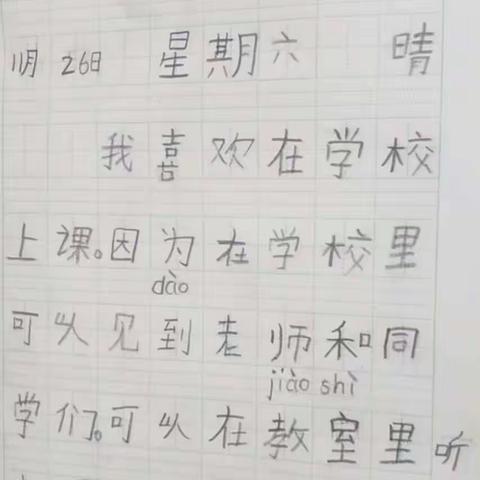 11月26日 星期六 晴
我喜欢在学校
上课。因为在学校里
dào
可以见到老师和同
jiào shì
学们。可以在教室里听